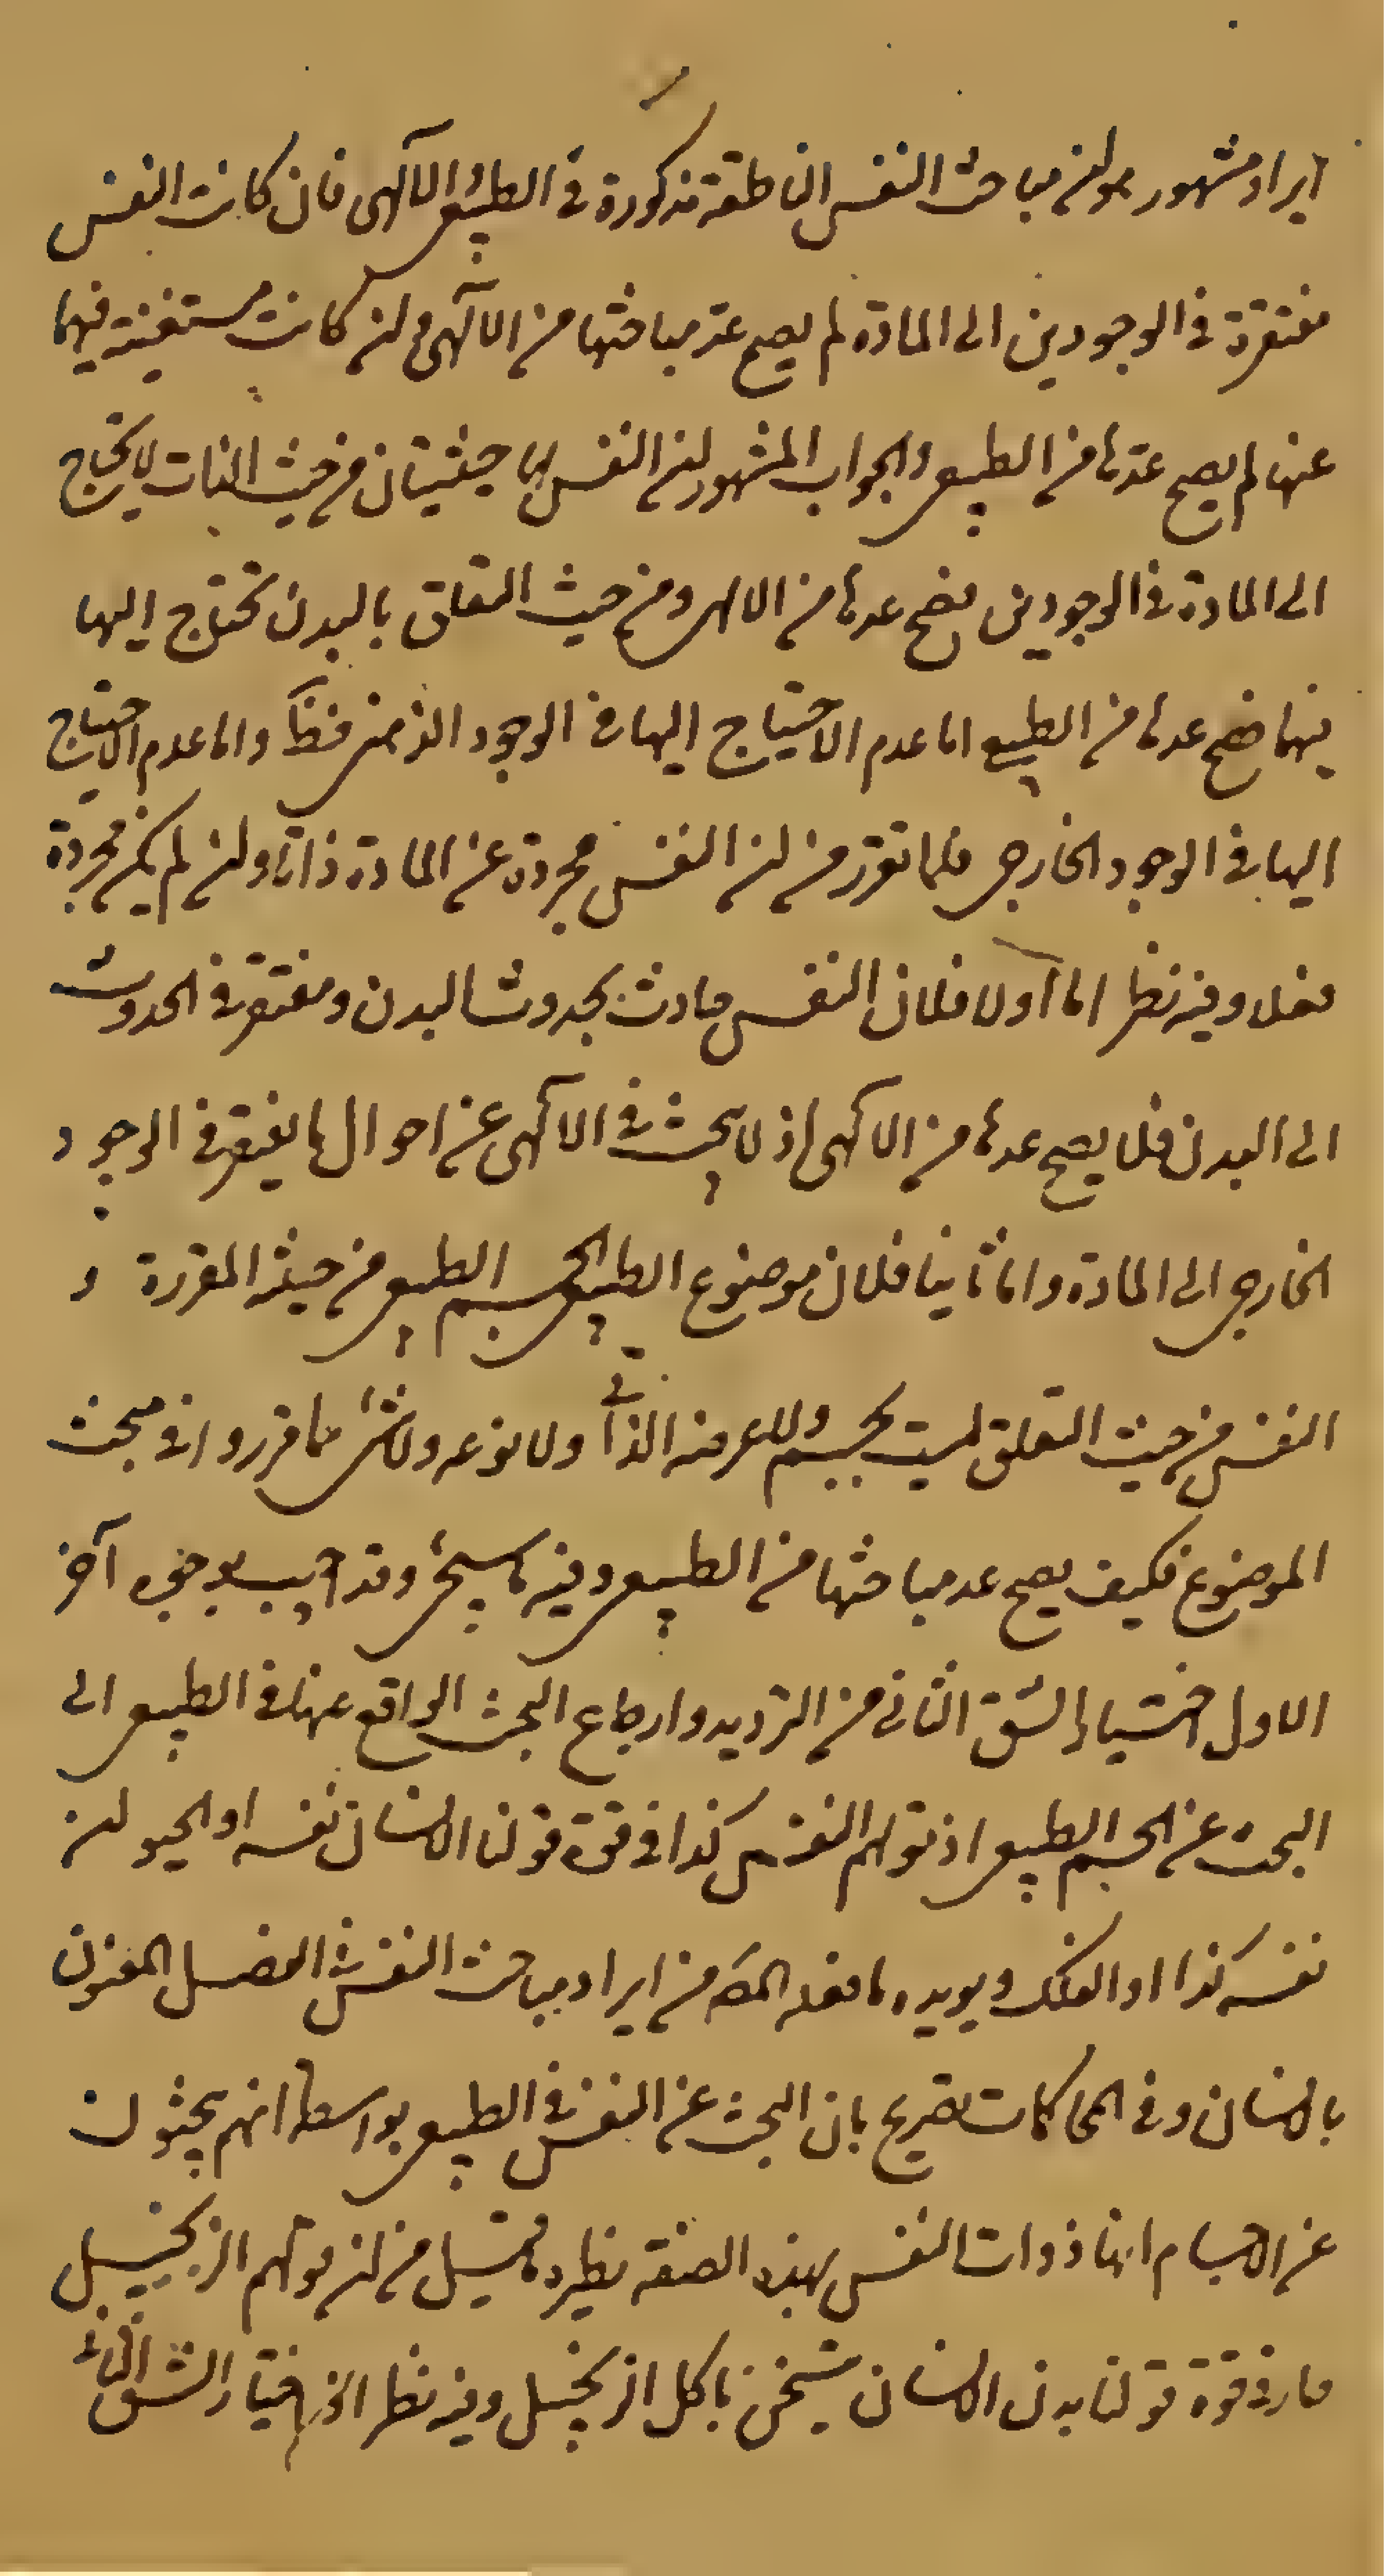 ايراد مشهور هو ان مباحث النفس الناطقة مذكورة في الطبيعى والآلهى فان كانت النفس
مفتقرة في الوجودين الى المادة لم يصح عد مباحثها من الآلهى وان كانت مستغنية فيهما
عنها لم يصح عدها من الطبيعى والجواب المشهور ان النفس لها حيثيتان من حيث الذات لا تحتاج
الى المادة في الوجودين فيصح عدها من الالهى ومن حيث التعلق بالبدن تحتاج اليها
فيهما فيصح عدها من الطبيعى اما عدم الاحتياج اليها في الوجود الذهنى فظ واما عدم الاحتياج
اليها في الوجود الخارجى فلما تقرر من ان النفس مجردة عن المادة ذاتا وان لم يكن مجردة
فعلا وفيه نظر اما اولا فلان النفس حادث بحدوث البدن ومفتقر في الحدوث
الى البدن فلا يصح عدها من الآلهى اذ لا يبحث في الآلهى عن احوال ما يفتقر في الوجود
الخارجى الى المادة واما ثانيا فلان موضوع الطبيعى الجسم الطبيعى من حيثه المقررة و
النفس من حيث التعلق ليست بجسم ولا عرضه الذاتى ولا نوعه ولا شئ مما قرروا في مبحث
الموضوع فكيف يصح عد مباحثها من الطبيعى وفيه ما سيجئ وقد اجيب بوجوه آخر
الاول اختيار الشق الثانى من الترديد وارجاع البحث الواقع عنها في الطبيعى الى
البحث عن الجسم الطبيعى اذ قولهم النفس كذا في قوة قولنا الانسان نفسه او الحيوان
نفسه كذا او الفلك ويويده ما فعله المص من ايراد مباحث النفس في الفصل المعنون
بالانسان وفى المحاكمات تصريح بان البحث عن النفس في الطبيعى بواسطة انهم يبحثون
عن الاجسام انها ذوات النفس بهذه الصفة نظيره ما قيل من ان قولهم الزنجبيل
حار في قوة قولنا بدن الانسان يتسخن باكل الزنجبيل وفيه نظر اذ اختيار الشق الثانى